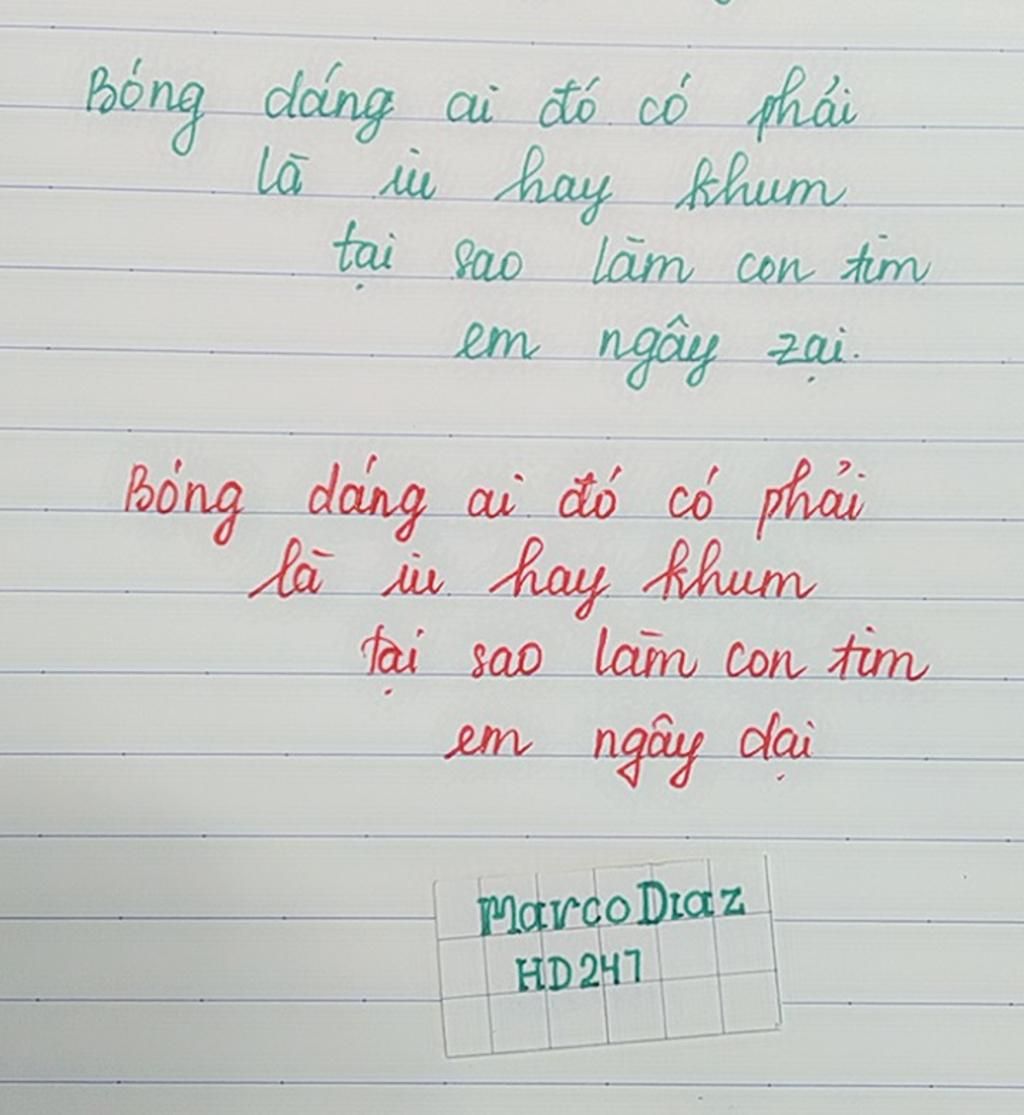 Bóng dáng ai đó có phải
là iu hay khum
tại sao làm con tim
em ngây zại.
Bóng dáng ai đó có phải
là iu hay khum
tại sao làm con tim
em ngây dại
Marco Diaz
HD247